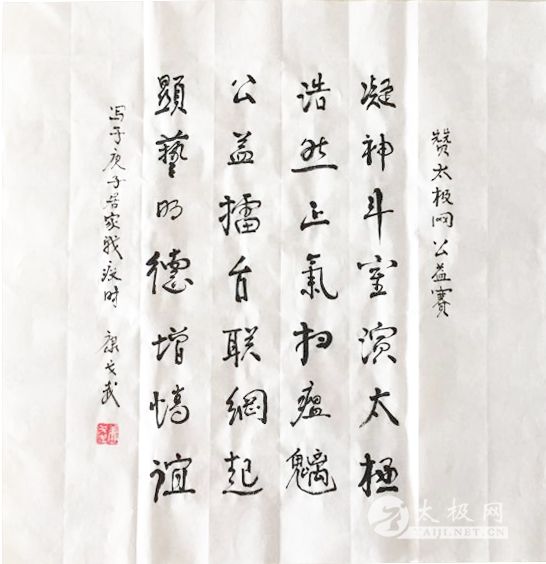 赞太极网公益賽
凝神斗室演太極
浩然正氣扫瘟魑
公益擂台联網起
顯藝明德增情谊
写于庚子居家战疫时 康戈武
太极网
TAIJI.NET.CN